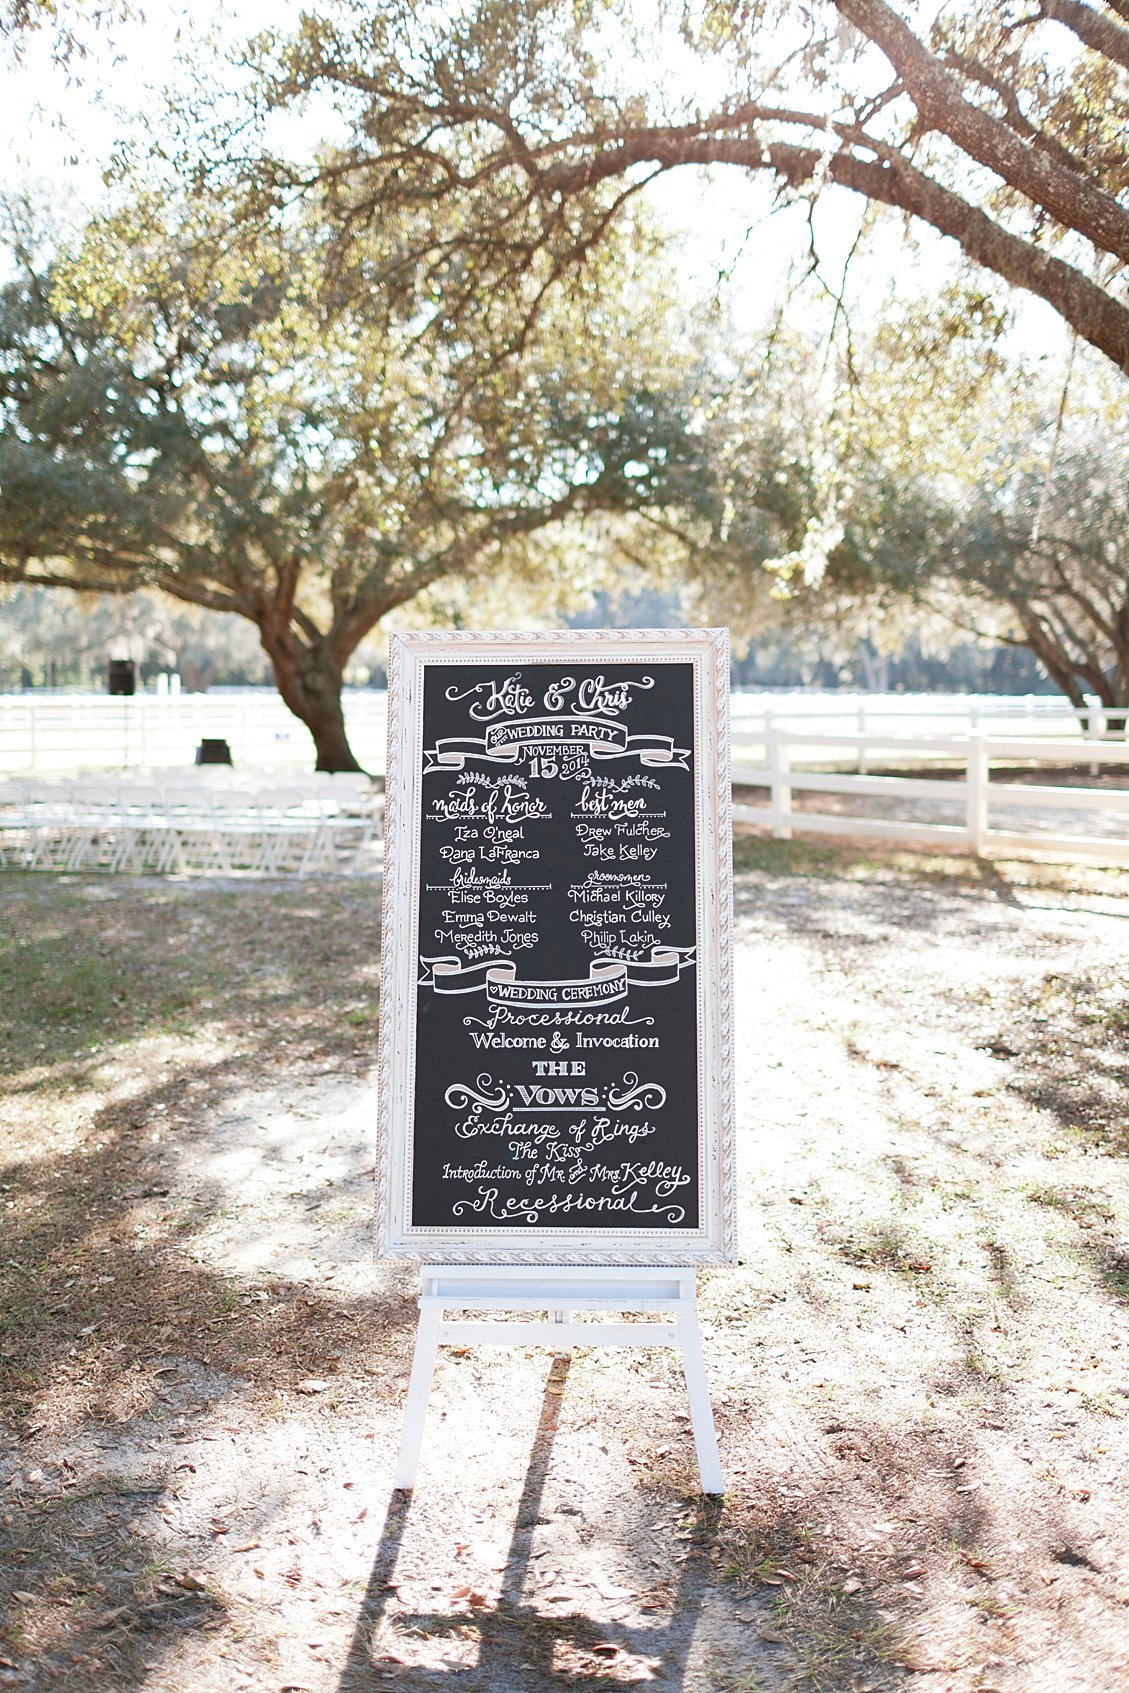 Katie & Chris
OUR WEDDING PARTY
NOVEMBER
15 2014
maids of honor
Iza O'neal
Dana LaFranca
bridesmaids
Elise Boyles
Emma Dewalt
Meredith Jones
best men
Drew Fulcher
Jake Kelley
groomsmen
Michael Killory
Christian Culley
Philip Lakin
WEDDING CEREMONY
Processional
Welcome & Invocation
THE
VOWS
Exchange of Rings
The Kiss
Introduction of Mr. and Mrs. Kelley
Recessional